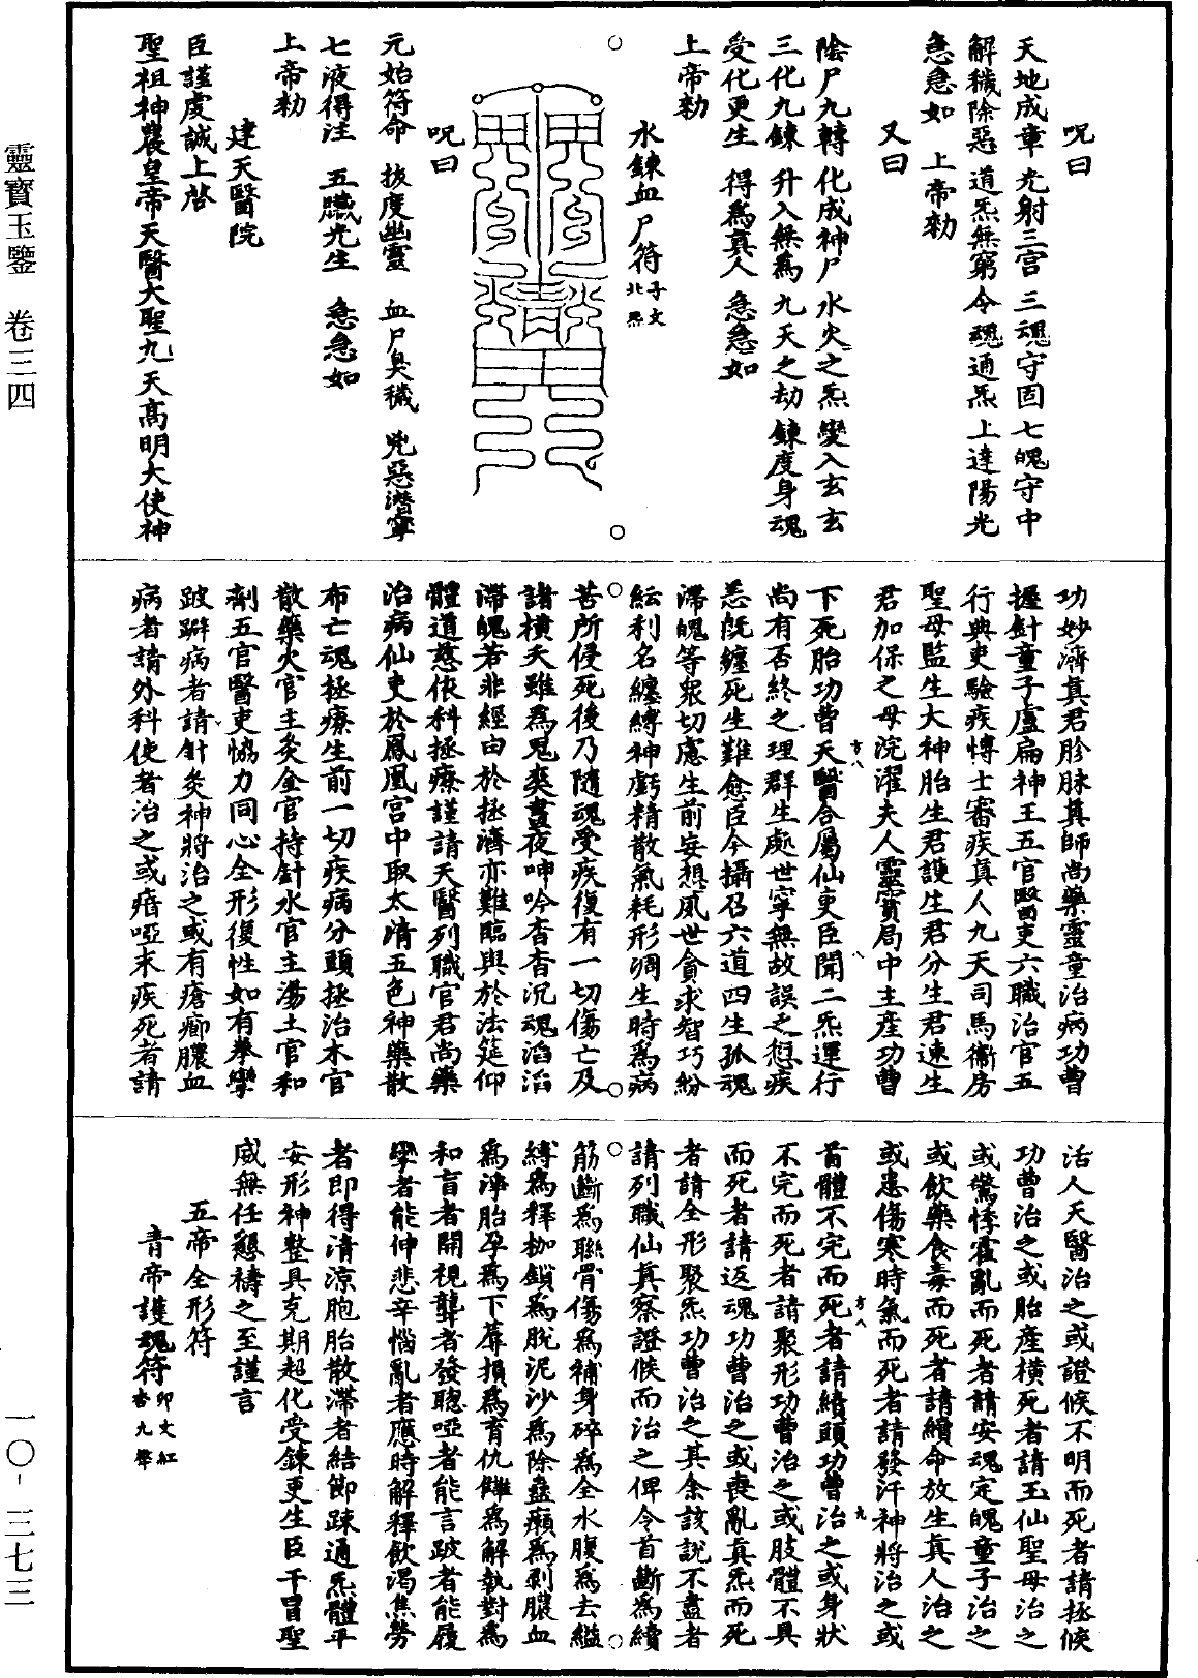 呪曰
天地成章光射三宮三魂守固七魄守中
解穢除惡道炁無窮令魂通炁上達陽光
急急如上帝勑
又曰
陰尸九轉化成神尸水火之炁變入玄玄
三化九鍊升入無爲九天之劫鍊度身魂
受化更生得爲真人急急如
上帝勑
水鍊血尸符子文北炁
呪曰
元始符命拔度幽靈血尸臭穢兇惡潜寧
七液得注五臟光生急急如
上帝勑
建天醫院
臣謹虔誠上啓
聖祖神農皇帝天醫大聖九天高明大使神
功妙濟真君胗脉真師尚藥靈童治病功曹
握針童子盧扁神王五官醫吏六職治官五
行典吏驗疾博士審疾真人九天司馬衛房
聖母監生大神胎生君護生君分生君速生
君加保之母浣濯夫人靈寳局中主產功曹
下死胎功曹天醫合屬仙吏臣聞二炁運行
尚有否終之理群生處世寧無故誤之愆疾
恙旣纏死生難愈臣今攝召六道四生孤魂
滯魄等衆切慮生前妄想夙世貪求智巧紛
紜利名纏縛神虧精散氣耗形凋生時爲病
苦所侵死後乃隨魂受疾復有一切傷亡及
諸橫夭雖爲鬼爽晝夜呻吟杳杳沉魂滔滔
滯魄若非經由於拯濟亦難臨與於法筵仰
體道慈依科拯療謹請天醫列職官君尚藥
治病仙吏於鳳凰宮中取太清五色神藥散
布亡魂拯療生前一切疾病分頭拯治木官
散藥火官主灸金官持針水官主湯土官和
劑五官醫吏恊力同心全形復性如有拳攣
跛躃病者請針灸神將治之或有瘡癤膿血
病者請外科使者治之或瘖啞末疾死者請
活人天醫治之或證候不明而死者請拯候
功曹治之或胎產橫死者請玉仙聖母治之
或驚悸霍亂而死者請安魂定魄童子治之
或飲藥食毒而死者請續命放生真人治之
或患傷寒時氣而死者請發汗神將治之或
首體不完而死者請續頭功曹治之或身狀
不完而死者請聚形功曹治之或肢體不具
而死者請返魂功曹治之或喪亂真炁而死
者請全形聚炁功曹治之其余該說不盡者
請列職仙真察證候而治之俾令首斷爲續
筋斷爲聯骨傷爲補身碎爲全水腹爲去縊
縛爲釋枷鎖爲脫泥沙爲除蠱癩爲剥膿血
爲淨胎孕爲下蓐損爲育仇讎爲解執對爲
和盲者開視聾者發聰啞者能言跛者能履
攣者能伸悲辛惱亂者應時解釋飲渴焦勞
者即得清涼胞胎散滯者結節踈通炁體平
安形神整具克期超化受鍊更生臣干冒聖
威無任懇禱之至謹言
五帝全形符
青帝護魂符
靈寳玉鑒 卷三四
一〇-三七三